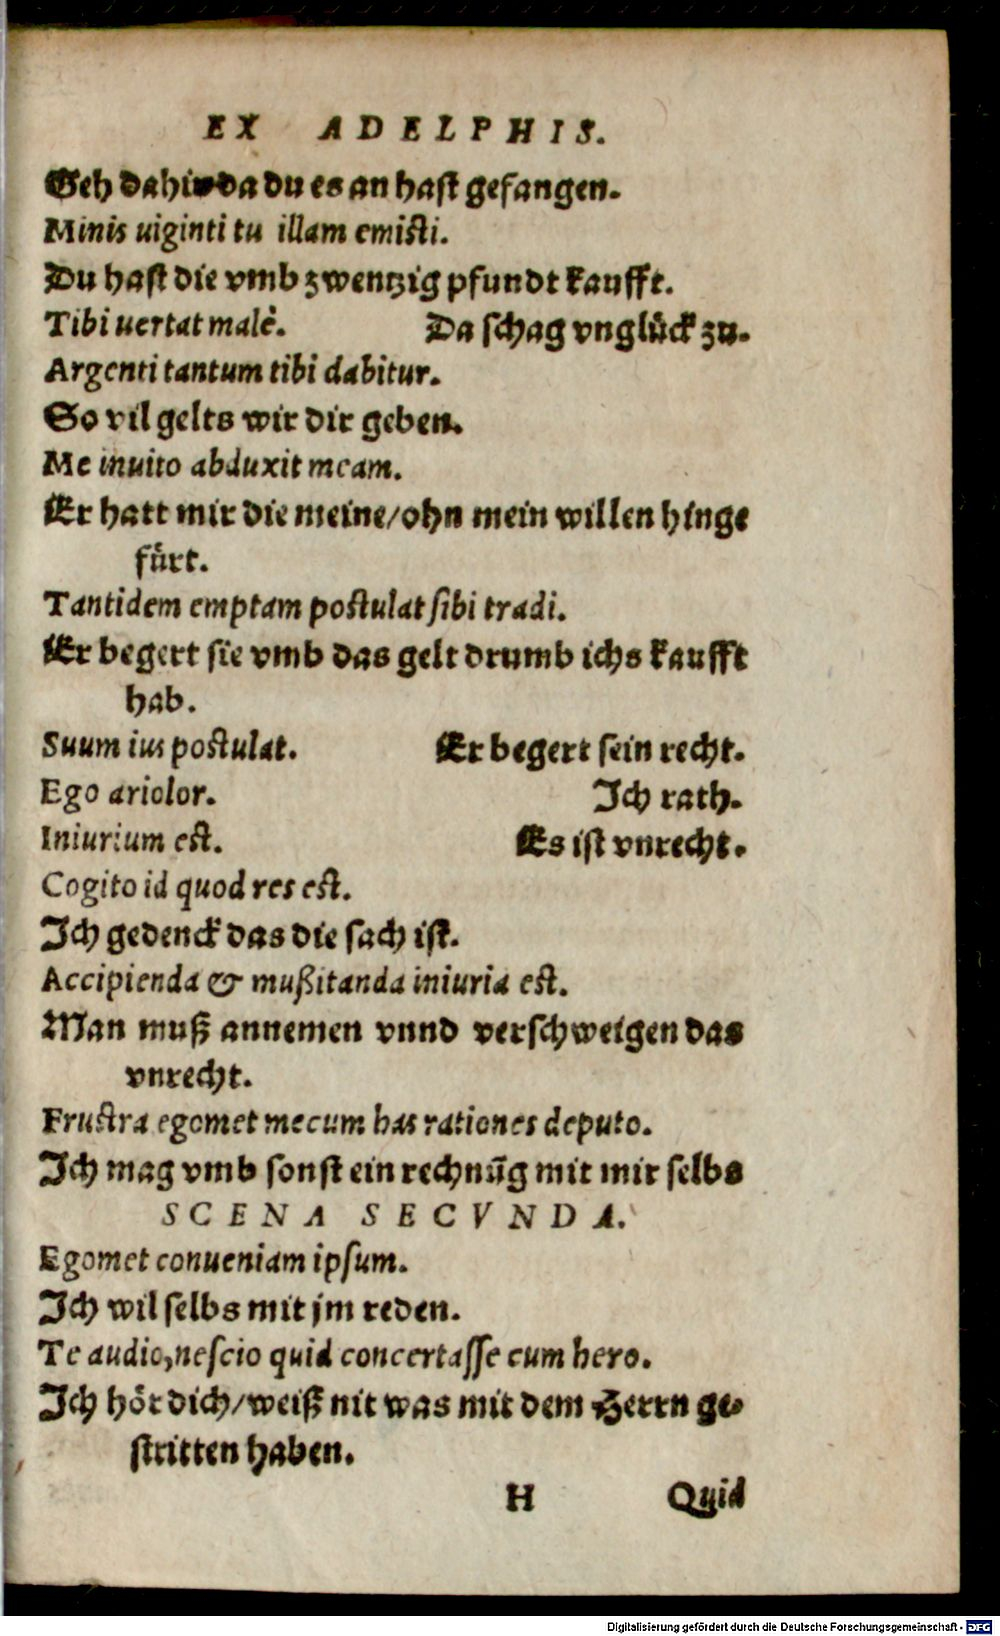 EX ADELPHIS.
Geh dahin da du es an hast gefangen.
Minis uiginti tu illam emisti.
Du hast die vmb zwentzig pfundt kaufft.
Tibi uertat malè. Da schag vnglůck zu.
Argenti tantum tibi dabitur.
So vil gelts wir dir geben.
Me inuito abduxit meam.
Er hatt mir die meine/ohn mein willen hinge
fůrt.
Tantidem emptam postulat sibi tradi.
Er begert sie vmb das gelt drumb ichs kaufft
hab.
Suum ius postulat. Er begert sein recht.
Ego ariolor. Ich rath.
Iniurium est. Es ist vnrecht.
Cogito id quod res est.
Ich gedenck das die sach ist.
Accipienda & mußitanda iniuria est.
Man muß annemen vnnd verschweigen das
vnrecht.
Frustra egomet mecum has rationes deputo.
Ich mag vmb sonst ein rechnūg mit mir selbs
SCENA SECVNDA.
Egomet conueniam ipsum.
Ich wil selbs mit jm reden.
Te audio, nescio quid concertasse cum hero.
Ich hör dich/weiß nit was mit dem Herrn ge-
stritten haben.
H Quid
Digitalisierung gefördert durch die Deutsche Forschungsgemeinschaft - DFG